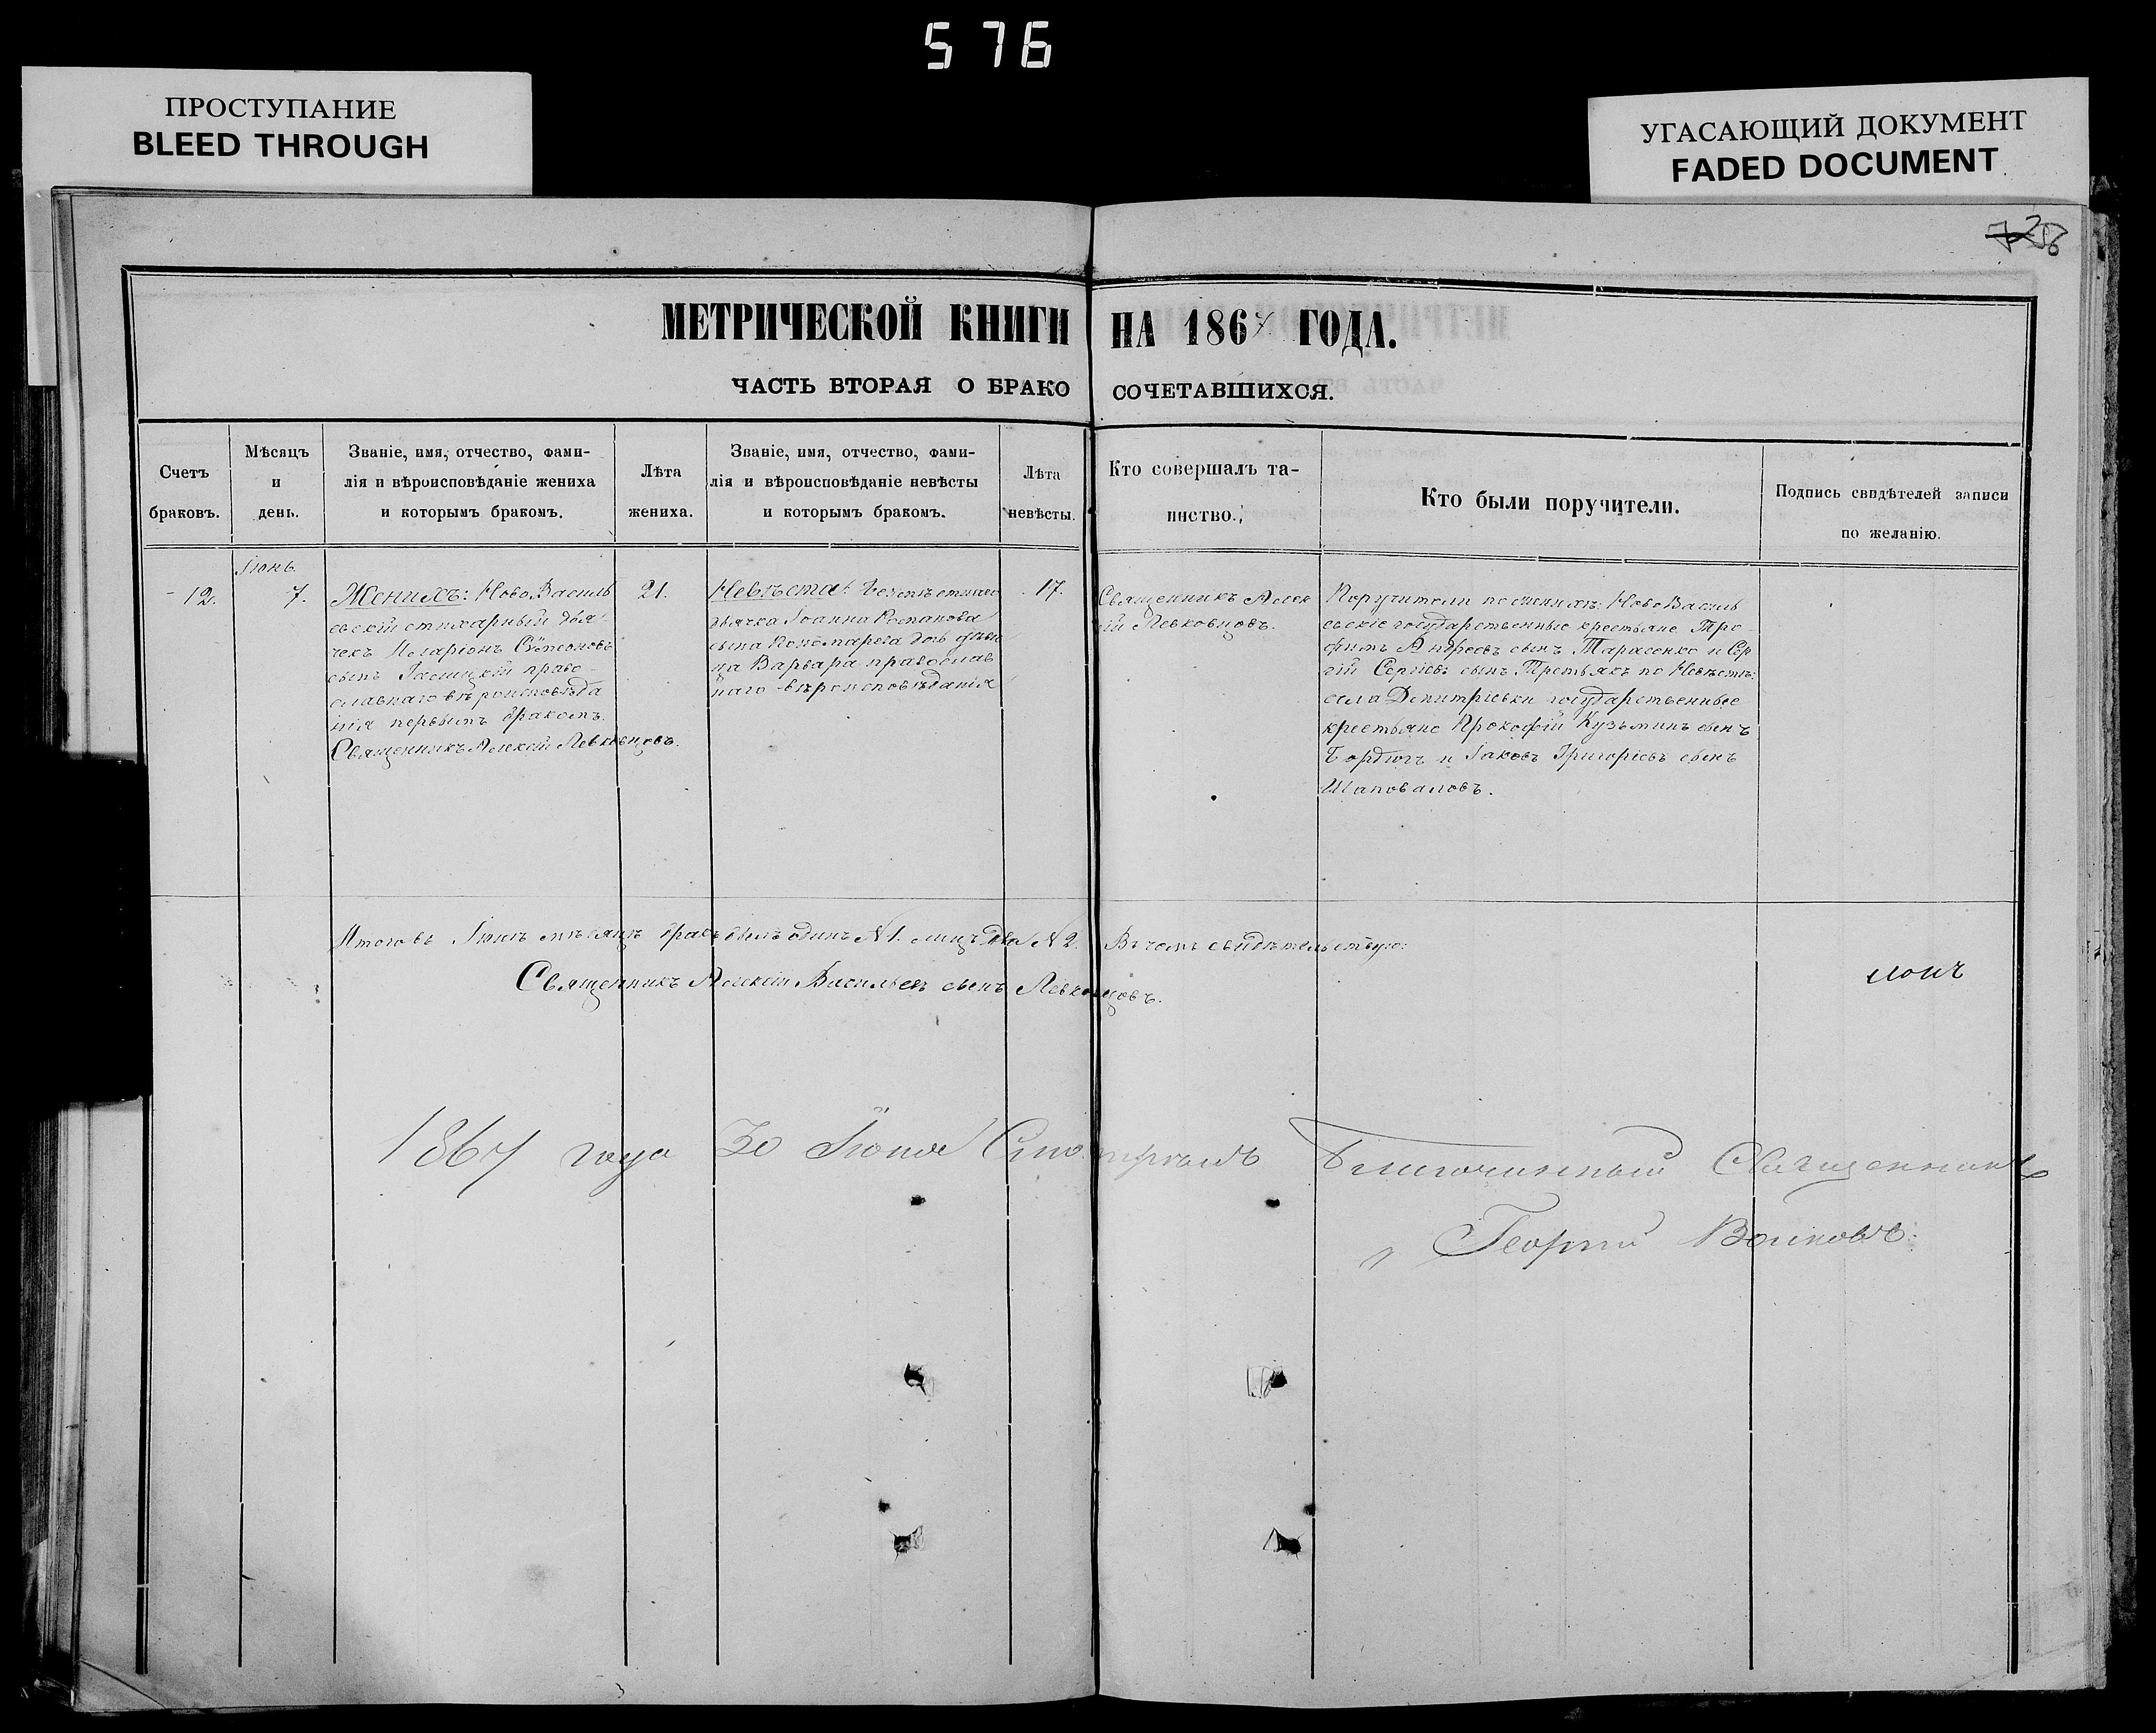 576
ПРОСТУПАНИЕ
BLEED THROUGH
УГАСАЮЩИЙ ДОКУМЕНТ
FADED DOCUMENT
МЕТРИЧЕСКОЙ КНИГИ НА 1867 ГОДА.
ЧАСТЬ ВТОРАЯ О БРАКО СОЧЕТАВШИХСЯ.
Счетъ
браковъ.
Мѣсяцъ
и
день.
Званіе, имя, отчество, фами-
лія и вѣроисповѣданіе жениха
и которымъ бракомъ.
Лѣта
жениха.
Званіе, имя, отчество, фами-
лія и вѣроисповѣданіе невѣсты
и которымъ бракомъ.
Лѣта
невѣсты.
Кто совершалъ та-
инство.
Кто были поручители.
Подпись свидѣтелей записи
по желанію.
12.
Іюнь
7.
Женихъ: НовоВасиль
евскій стихарный дья-
чекъ Иларіонъ Сѵмеоновъ
сынъ право-
славнаго вѣроисповѣда
нія первымъ бракомъ.
Священникъ Алексій Левковцовъ.
21.
Невѣста:
дьячка Іоанна Романова
сына Пономарева дочь дѣви
ца Варвара православ
наго вѣроисповѣданія
17.
Священникъ Алек
сій Левковцовъ.
Поручители по женихѣ: НовоВасиль
евскіе государственные крестьяне Тро-
фимъ Андреевъ сынъ Тарасенко и Сер
гій Сергіевъ сынъ Третьякъ по Невѣстѣ:
села Димитріевки государственные
крестьяне Прокофій Кузьминъ сынъ
и Іаковъ Григоріевъ сынъ
Шаповаловъ.
Итого въ Іюнѣ мѣсяцѣ бракъ былъ одинъ №1. лицъ два №2. Въ чемъ свидѣтельствую:
Священникъ Алексій Васильевъ сынъ Левковцовъ.
1867 года 30 Іюня Смотрѣлъ Благочинный Священникъ
Георгій Волковъ.